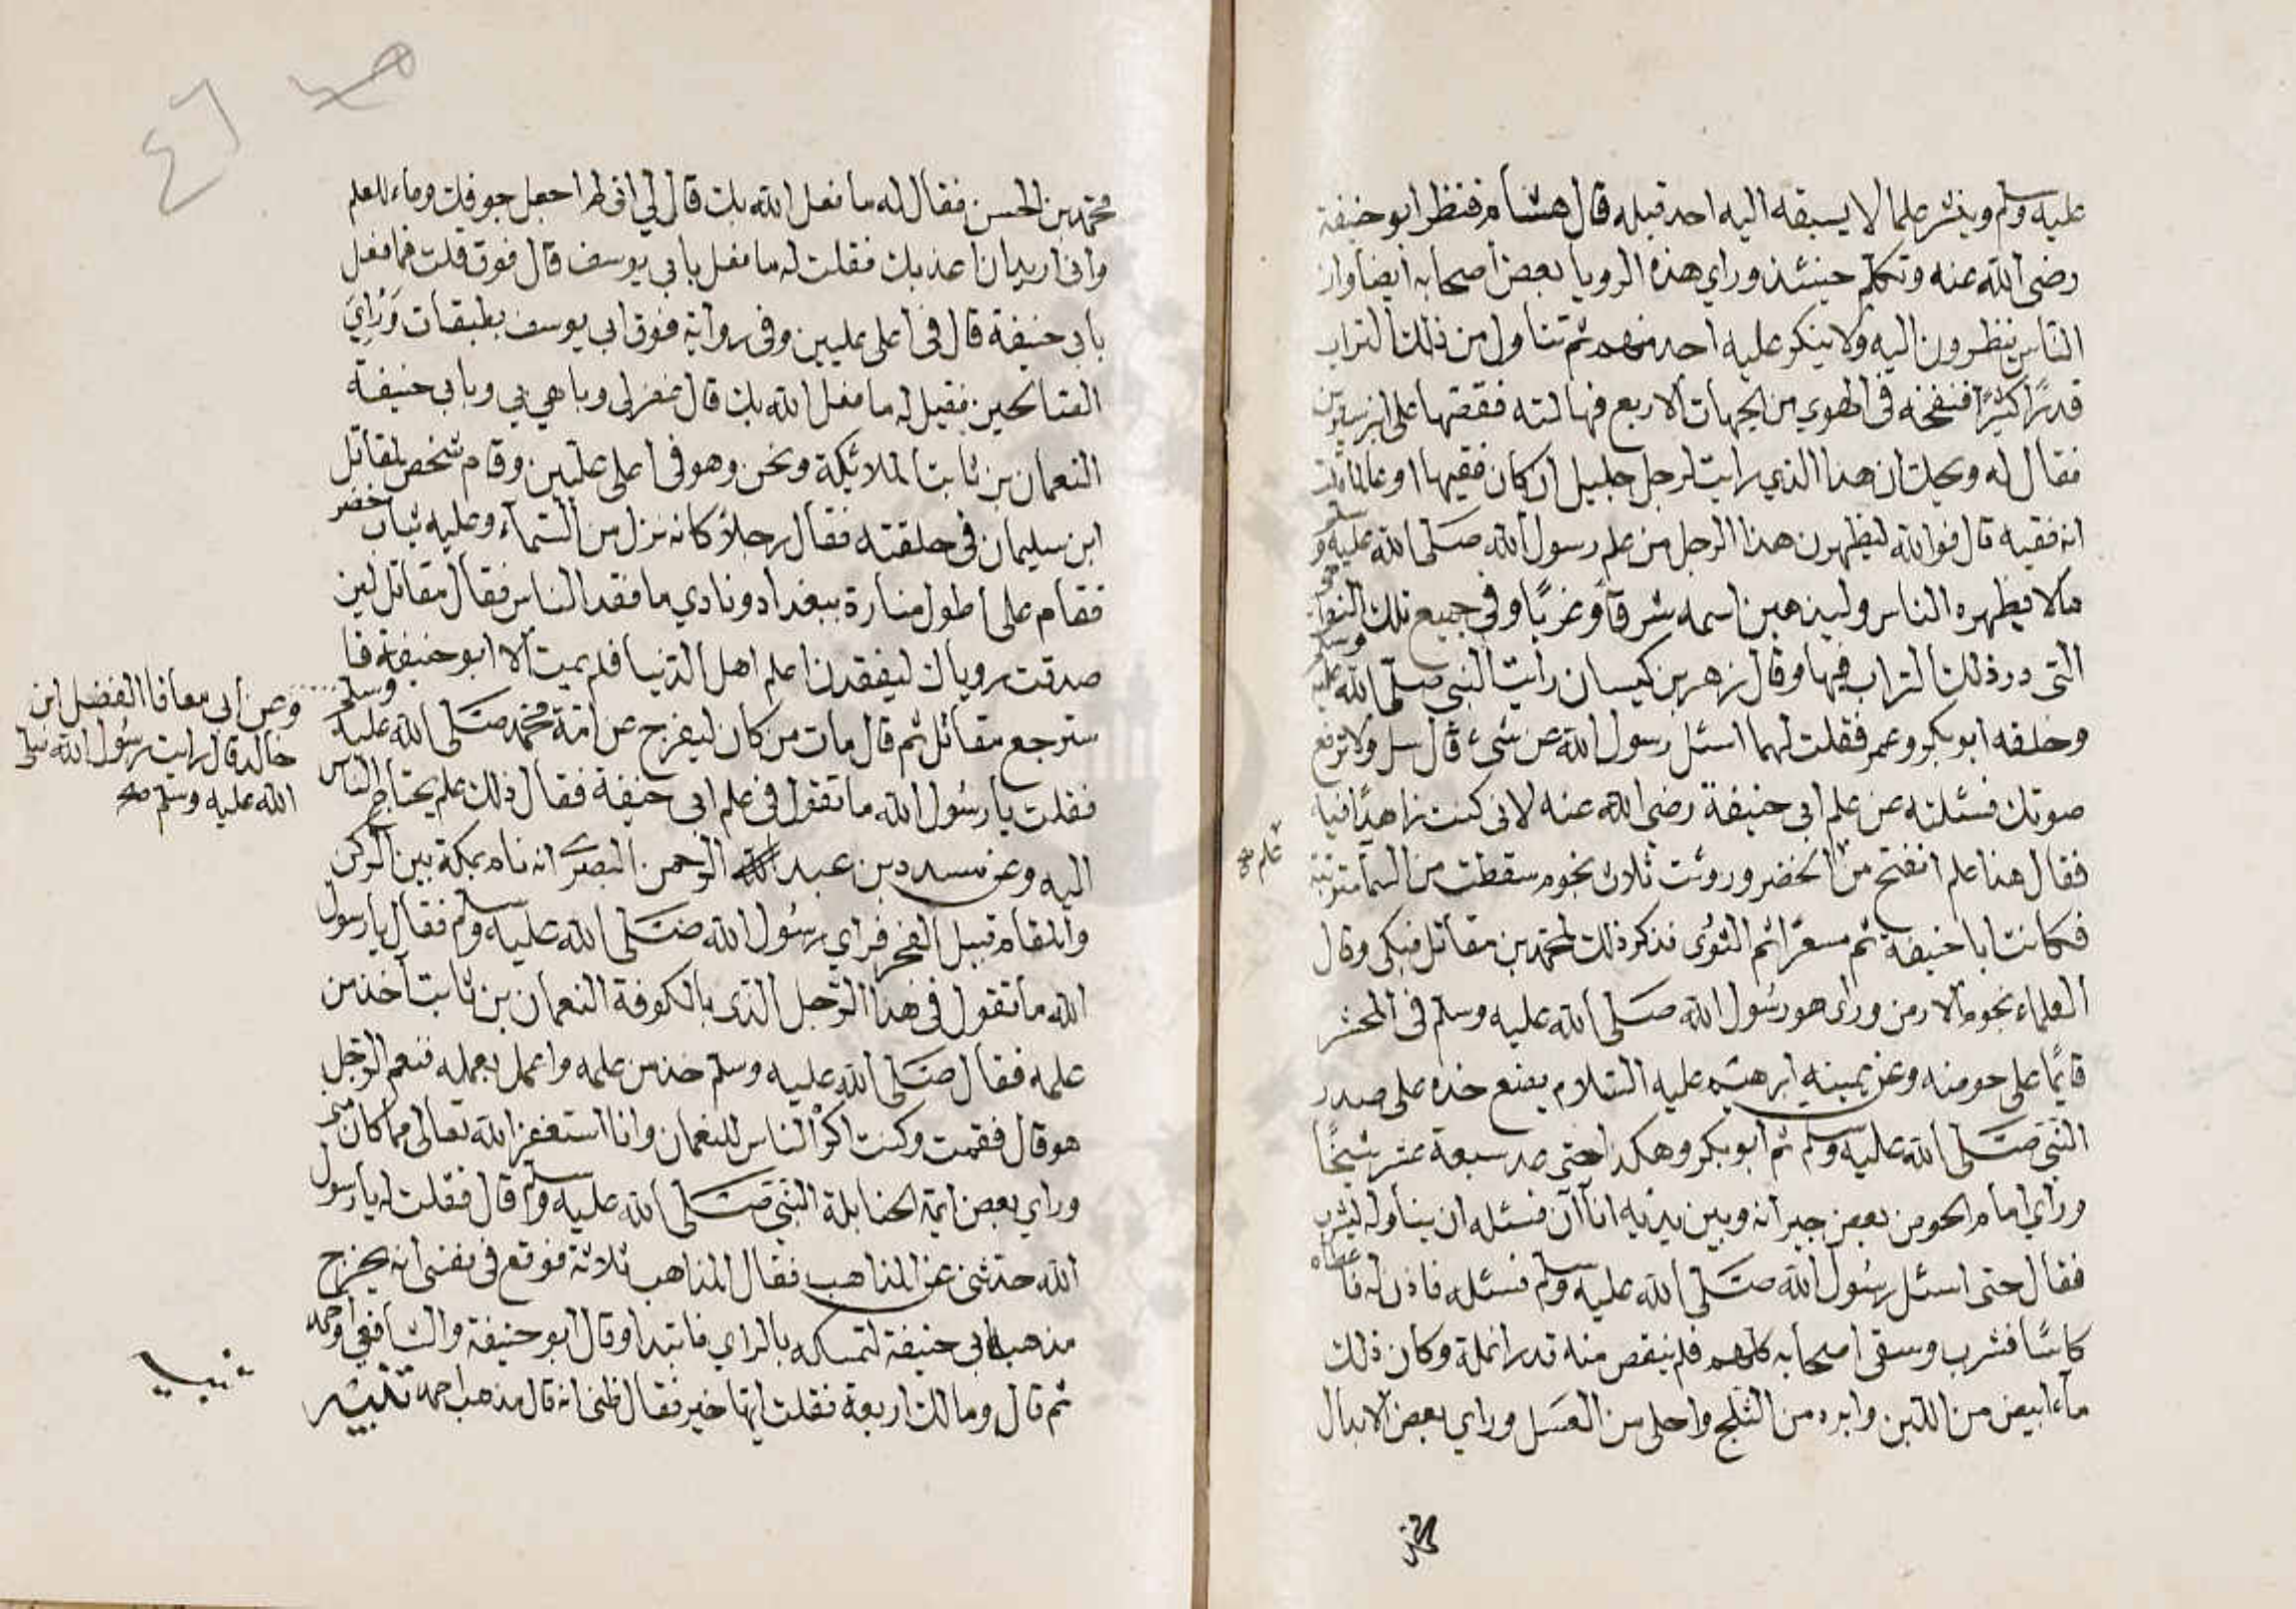 عليه وسلم وينشر علما لا يسبقه اليه احد قبله قال هشام فنظر ابو حنيفة
رضى الله عنه وتكلم حينئذ وراي هذه الرويا بعض اصحابه ايضا وان
الناس ينظرون اليه ولا ينكر عليه احد منهم ثم تناول من ذلك التراب
قدرًا كثيرًا فنفخه فى الهوي من الجهات الاربع فهالته فقصها على ابن سيرين
فقال له ويحك ان هذا الذي رايت لرجل جليل ان كان فقيها او عالما قلت
انه فقيه قال فوالله ليظهرن هذا الرجل من علم رسول الله صلى الله عليه وسلم
مالا يظهره الناس وليذهبن اسمه شرقا وغربًا وفى جميع تلك
التى در ذلك التراب فيها وقال زهر بن كيسان رايت النبى صلى الله عليه وسلم
وخلفه ابو بكر وعمر فقلت لهما اسئل رسول الله عن شىء قال سل ولا ترفع
صوتك فسئلته عن علم ابى حنيفة رضى الله عنه لانى كنت زاهدًا فيه
فقال هذا علم انفتح من الخضر وروئت ثلاث نجوم سقطت من السما
علم صح
فكانت ابا حنيفة ثم مسعرًا ثم الثورى فذكر ذلك لمحمد بن مقاتل فبكى وقال
العلماء نجوم الارض وراى هو رسول الله صلى الله عليه وسلم فى المحشر
قايمًا على حوضه وعن يمينه ابرهيم عليه السلام يضع خده على صدر
النبى صلى الله عليه وسلم ثم ابو بكر وهكذا حتى عد سبعة عشر شيخًا
وراي امام الحوض بعض جيرانه وبين يديه اناآن فسئله ان يناوله ليشرب
فقال حتى اسئل رسول الله صلى الله عليه وسلم فسئله فاذن له فاعطاه
كاسًا فشرب وسقى اصحابه كلهم فلم ينقص منه قدر انملة وكان ذلك
مآء ابيض من اللبن وابرد من الثلج واحلى من العسل وراي بعض الابدال
محمد بن الحسن فقال له ما فعل الله بك قال لي انى لم اجعل جوفك وعاء للعلم
وانى اريد ان اعذبك فقلت له ما فعل بابي يوسف قال فوق قلت فما فعل
بابي حنيفة قال فى اعلى عليين وفى رواية فوق ابي يوسف بطبقات وراي
الصالحين فقيل له ما فعل الله بك قال غفر لى وباهي بي وبابي حنيفة
النعمان بن ثابت الملائكة ونحن وهو فى اعلى عليين وقام شخص لمقاتل
ابن سليمان فى حلقته فقال رجلا كانه نزل من السماء وعليه ثياب خضر
فقام على اطول منارة ببغداد ونادي ما فقد الناس فقال مقاتل لين
صدقت روياك ليفقدن اعلم اهل الدنيا فلم يمت الا ابو حنيفة فا
سترجع مقاتل ثم قال مات من كان ليفرج عن امة محمد صلى الله عليه وسلم
وعن ابي معافا الفضل ابن
خالد قال رايت رسول الله صلى
الله عليه وسلم صح
فقلت يا رسول الله ما تقول فى علم ابى حنيفة فقال ذلك علم يحتاج الناس
اليه وعن مسدد بن عبد الرحمن البصرى انه نام بمكة بين الركن
والمقام قبيل الفجر فراي رسول الله صلى الله عليه وسلم فقال يا رسول
الله ما تقول فى هذا الرجل الذى بالكوفة النعمان بن ثابت آخذ من
علمه فقال صلى الله عليه وسلم خذ من علمه واعمل بعمله فنعم الرجل
هو قال فقمت وكنت اكره الناس للنعمان وانا استغفر الله تعالى مما كان منى
وراي بعض ايمة الحنابلة النبى صلى الله عليه وسلم قال فقلت له يا رسول
الله حدثنى عن المذاهب فقال المذاهب ثلاثة فوقع فى نفسى انه يخرج
مذهب ابى حنيفة لتمسكه بالراي فابتدا وقال ابو حنيفة والشافعى واحمد
ثم قال ومالك اربعة فقلت ايها خير فقال ظنى انه قال مذهب احمد تنبيه